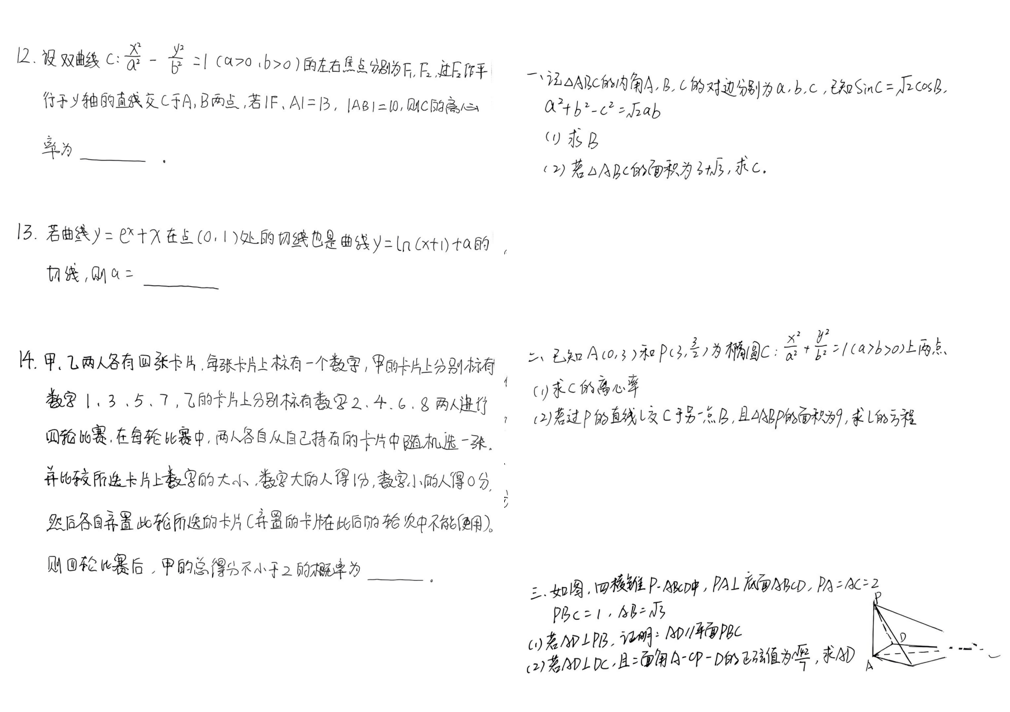 12. 设双曲线C: x²/a² - y²/b² = 1 (a>0, b>0)的左右焦点分别为F₁, F₂, 过F₂作平
行于y轴的直线交C于A, B两点, 若|F₁A|=13, |AB|=10, 则C的离心
率为 ______ .
13. 若曲线y=eˣ+x在点(0,1)处的切线也是曲线y=ln(x+1)+a的
切线, 则a= ______
14. 甲、乙两人各有四张卡片, 每张卡片上标有一个数字, 甲的卡片上分别标有
数字1、3、5、7, 乙的卡片上分别标有数字2、4、6、8两人进行
四轮比赛, 在每轮比赛中, 两人各自从自己持有的卡片中随机选一张,
并比较所选卡片上数字的大小, 数字大的人得1分, 数字小的人得0分,
然后各自弃置此轮所选的卡片(弃置的卡片在此后的轮次中不能使用)。
则四轮比赛后, 甲的总得分不小于2的概率为 ______ .
一、记△ABC的内角A、B、C的对边分别为a, b, c, 已知SinC=√2cosB,
a²+b²-c²=√2ab
(1) 求B
(2) 若△ABC的面积为3+√3, 求C.
二、已知A(0,3)和P(3, 3/2)为椭圆C: x²/a² + y²/b² = 1(a>b>0)上两点、
(1) 求C的离心率
(2) 若过P的直线l交C于另一点B, 且△ABP的面积为9, 求l的方程
三、如图, 四棱锥P-ABCD中, PA⊥底面ABCD, PA=AC=2
PBC=1, AB=√3
(1) 若AD⊥PB, 证明: AD//平面PBC
(2) 若AD⊥DC, 且二面角A-CP-D的正弦值为√42/7, 求AD
P
D
A